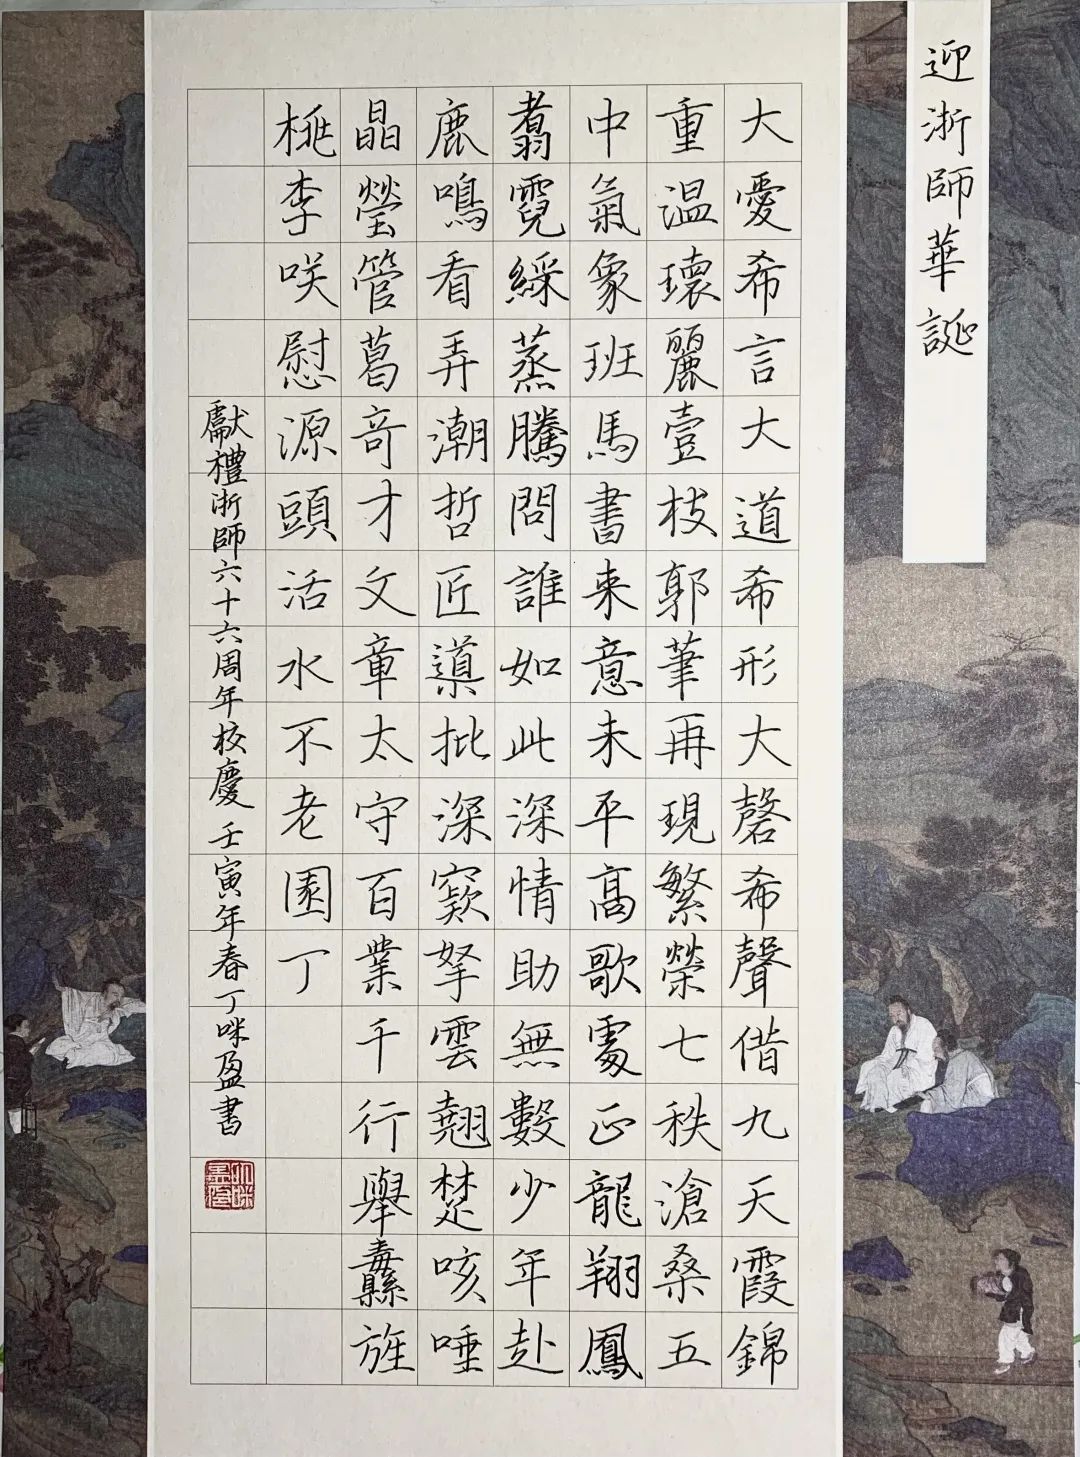 迎浙師華誕
大愛希言大道希形大磬希聲借九天霞錦
重温瓌麗壹枝郭筆再現繁榮七秩滄桑五
中氣象班馬書来意未平高歌處正龍翔鳳
翥霓綵蒸騰問誰如此深情助無數少年赴
鹿鳴看弄潮哲匠導批深窾拏雲翹楚咳唾
晶瑩管葛奇才文章太守百業千行舉纛旌
桃李咲慰源頭活水不老園丁
獻禮浙師六十六周年校慶 壬寅年春丁咪盈書